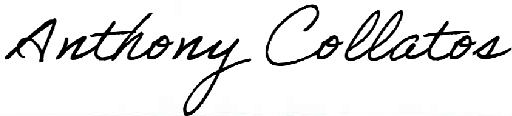 Anthony Collatos